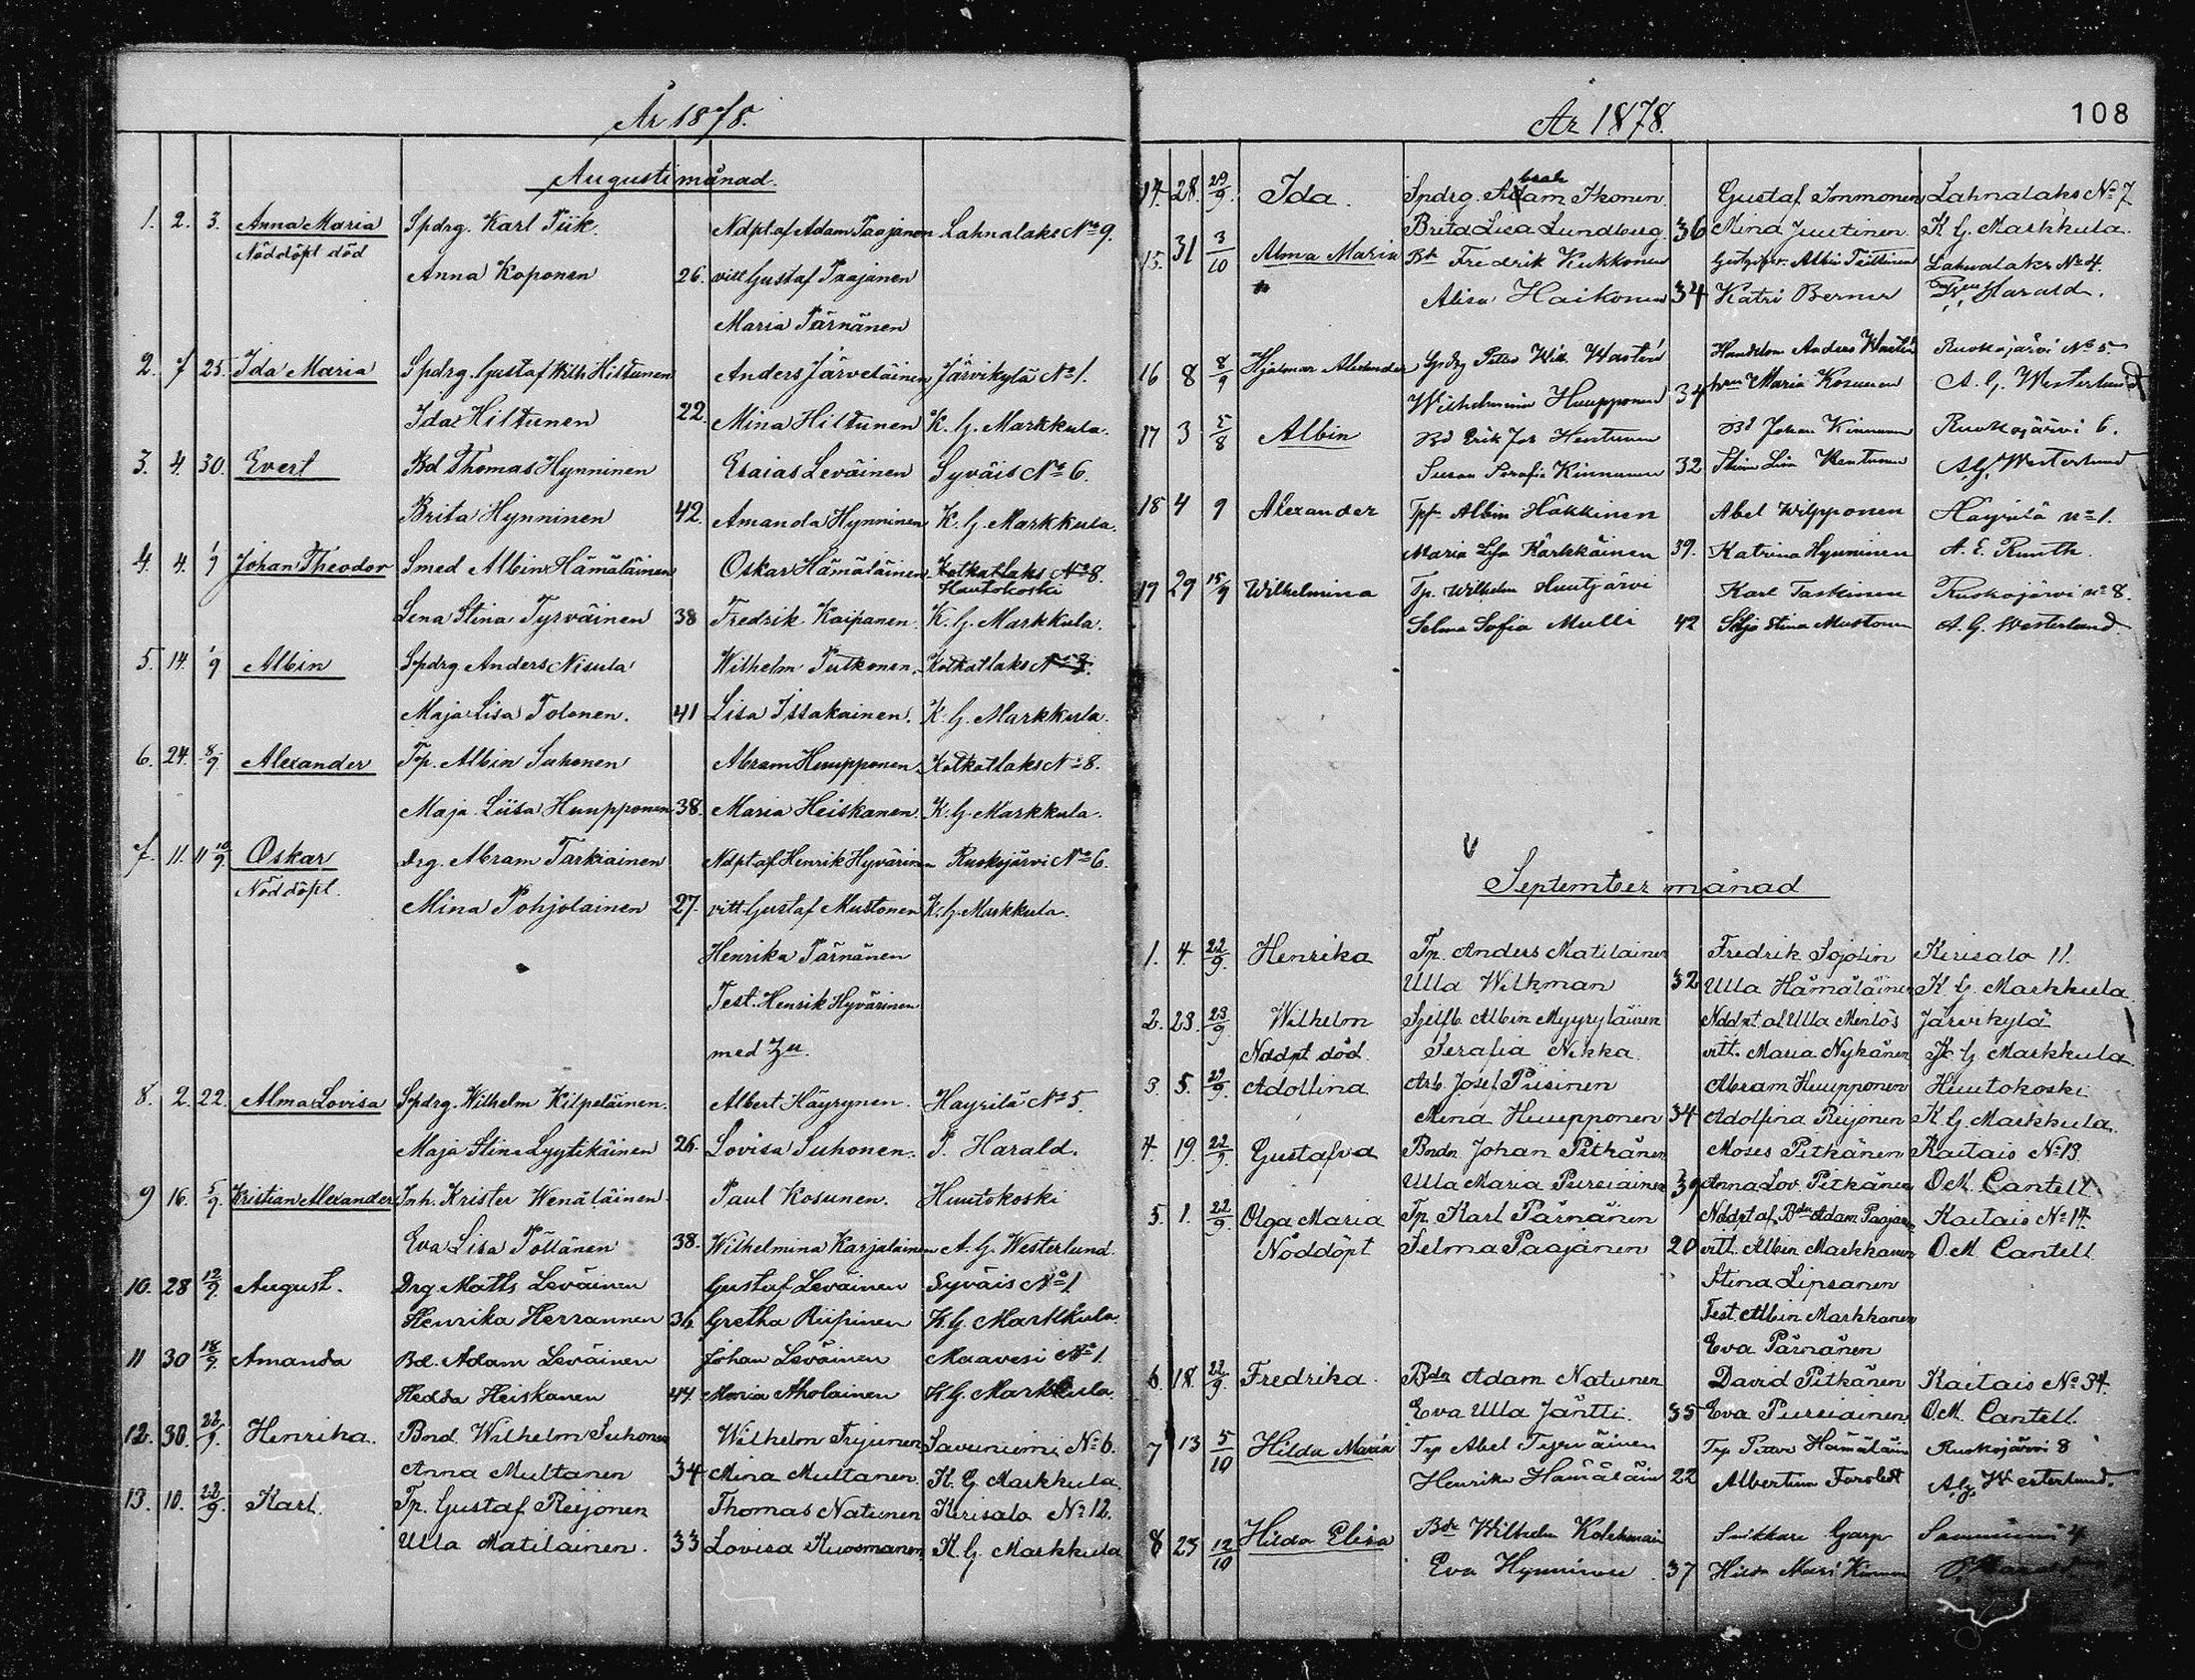 År 1878.
Augusti månad.
1. 2. 3. Anna Maria Spdrg. Karl Tiik Ndpt. af Adam Paajanen Lahnalaks No 9.
Nöddöpt död
Anna Koponen 26. vitt Gustaf Paajanen
Maria Pärnänen
2. 7 25. Ida Maria Spdrg. Gustaf Wilh Hiltunen Anders Järveläinen Järvikylä No 1.
Ida Hiltunen 22. Mina Hiltunen K. G. Markkula.
3. 4. 30. Evert Bd Thomas Hynninen Esaias Leväinen Syväis No 6.
Brita Hynninen 42. Amanda Hynninen K. G. Markkula.
4. 4. 1/9 Johan Theodor Smed Albin Hämäläinen Oskar Hämäläinen Kotkatlaks No 8.
Huutokoski
Lena Stina Tyrväinen 38 Fredrik Kaipanen K. G. Markkula.
5. 14. 1/9 Albin Spdrg. Anders Nisula Wilhelm Putkonen. Kotkatlaks No 3.
Maja Lisa Tolonen. 41 Lisa Issakainen. K. G. Markkula.
6. 24. 8/9 Alexander Tp. Albin Suhonen Abram Huupponen Kotkatlaks No 8.
Maja Liisa Huupponen 38. Maria Heiskanen. K. G. Markkula.
7. 11. 11 10/9 Oskar Drg. Abram Tarkiainen Ndpt af Henrik Hyvärinen Ruokojärvi No 6.
Nöddöpt.
Mina Pohjolainen 27. vitt. Gustaf Mustonen K. G. Markkula.
Henrika Pärnänen
Test. Henrik Hyvärinen
med
8. 2. 22. Alma Lovisa Spdrg. Wilhelm Kilpeläinen. Albert Häyrynen. Häyrilä No 5.
Maja Stina Lyytikäinen 26. Lovisa Suhonen. P. Harald.
9 16. 5/9. Kristian Alexander Inh. Krister Wenäläinen Paul Kosunen. Huutokoski
Eva Lisa Pöllänen 38. Wilhelmina Karjalainen A. G. Westerlund.
10. 28 12/9. August. Drg Matts Leväinen Gustaf Leväinen Syväis No 1
Henrika Herrannen 36 Gretha Riipinen K. G. Markkula
11 30 18/9. Amanda Bd. Adam Leväinen Johan Leväinen Maavesi No 1
Hedda Heiskanen 44. Maria Aholainen K. G. Markkula
12. 30. 22/9. Henrika. Bnd. Wilhelm Suhonen Wilhelm Savuniemi No 6.
Anna Multanen 34 Mina Multanen K. G. Markkula.
13. 10. 22/9. Karl. Tp. Gustaf Reijonen Thomas Natunen Kerisalo No 12.
Ulla Matilainen. 33 Lovisa Kuosmanen K. G. Markkula
År 1878.
108
14. 28. 29/9. Ida. Spdrg. Adam Ikonen. Gustaf Immonen Lahnalaks No 7
Brita Lisa Lundberg. 36 Mina Juutinen K. G. Markkula.
15. 31 3/10 Alma Maria Bd Fredrik Kukkonen Albin Teittinen Lahnalaks No 4.
Alisa Haikonen 34 Katri Berner Harald.
16 8 8/9 Hjalmar Alexander Spdrg Petter Wilh Wastén Anders Wastén Ruokojärvi No 5.
Wilhelmina Huupponen 34 Maria Kosunen A. G. Westerlund
17 3 5/8 Albin Bd Erik Joh Bd Johan Kinnunen Ruokojärvi 6.
Susan Serafia Kinnunen 32 Stina Lisa A. G. Westerlund
18 4 9 Alexander Albin Häkkinen Abel Wilpponen Häyrilä no 1.
Maria Lisa Kärkkäinen 39. Katrina Hynninen A. E. Runth.
19 29 15/9 Wilhelmina Tp. Wilhelm Huutjärvi Karl Taskinen Ruokojärvi no 8.
Selma Sofia Mulli 42 Stina Mustonen A. G. Westerlund.
September månad
1. 4. 22/9. Henrika Tp. Anders Matilainen Fredrik Sojolin Kerisalo 11.
Ulla Wilkman 32 Ulla Hämäläinen K. G. Markkula.
2. 23. 23/9. Wilhelm Sjelfb. Albin Myyryläinen Nddpt af Ulla Menlös Järvikylä
Nddpt död. Serafia Nikka. vitt. Maria Nykänen K. G. Markkula.
3. 5. 29/9. Adolfina Arb. Josef Piisinen Abram Huupponen Huutokoski
Mina Huupponen 34 Adolfina Reijonen K. G. Markkula.
4. 19. 22/9. Gustafva Bndn Johan Pitkänen Moses Pitkänen Kaitais No 13.
Ulla Maria Pursiainen 39 Anna Lov. Pitkänen O. M. Cantell.
5. 1. 22/9. Olga Maria Tp. Karl Pärnänen Nddpt af Bdn Adam Paajanen Kaitais No 14.
Nöddöpt Selma Paajanen 20 vitt. Albin Markkanen O. M. Cantell
Stina Lipsanen
Test. Albin Markkanen
Eva Pärnänen
6. 18. 22/9. Fredrika. Bdn Adam Natunen David Pitkänen Kaitais No 34.
Eva Ulla Jäntti. 35 Eva Pursiainen O. M. Cantell.
7 13 5/10 Hilda Maria Tp Abel Tyrväinen Tp Petter Hämäläin Ruokojärvi 8
Henrika Hämäläin 22 Albertina A. G. Westerlund.
8 23 12/10 Hilda Elisa Bdn Wilhelm Kolehmain
Eva Hynninen 37 Hilda Mari Kinnun